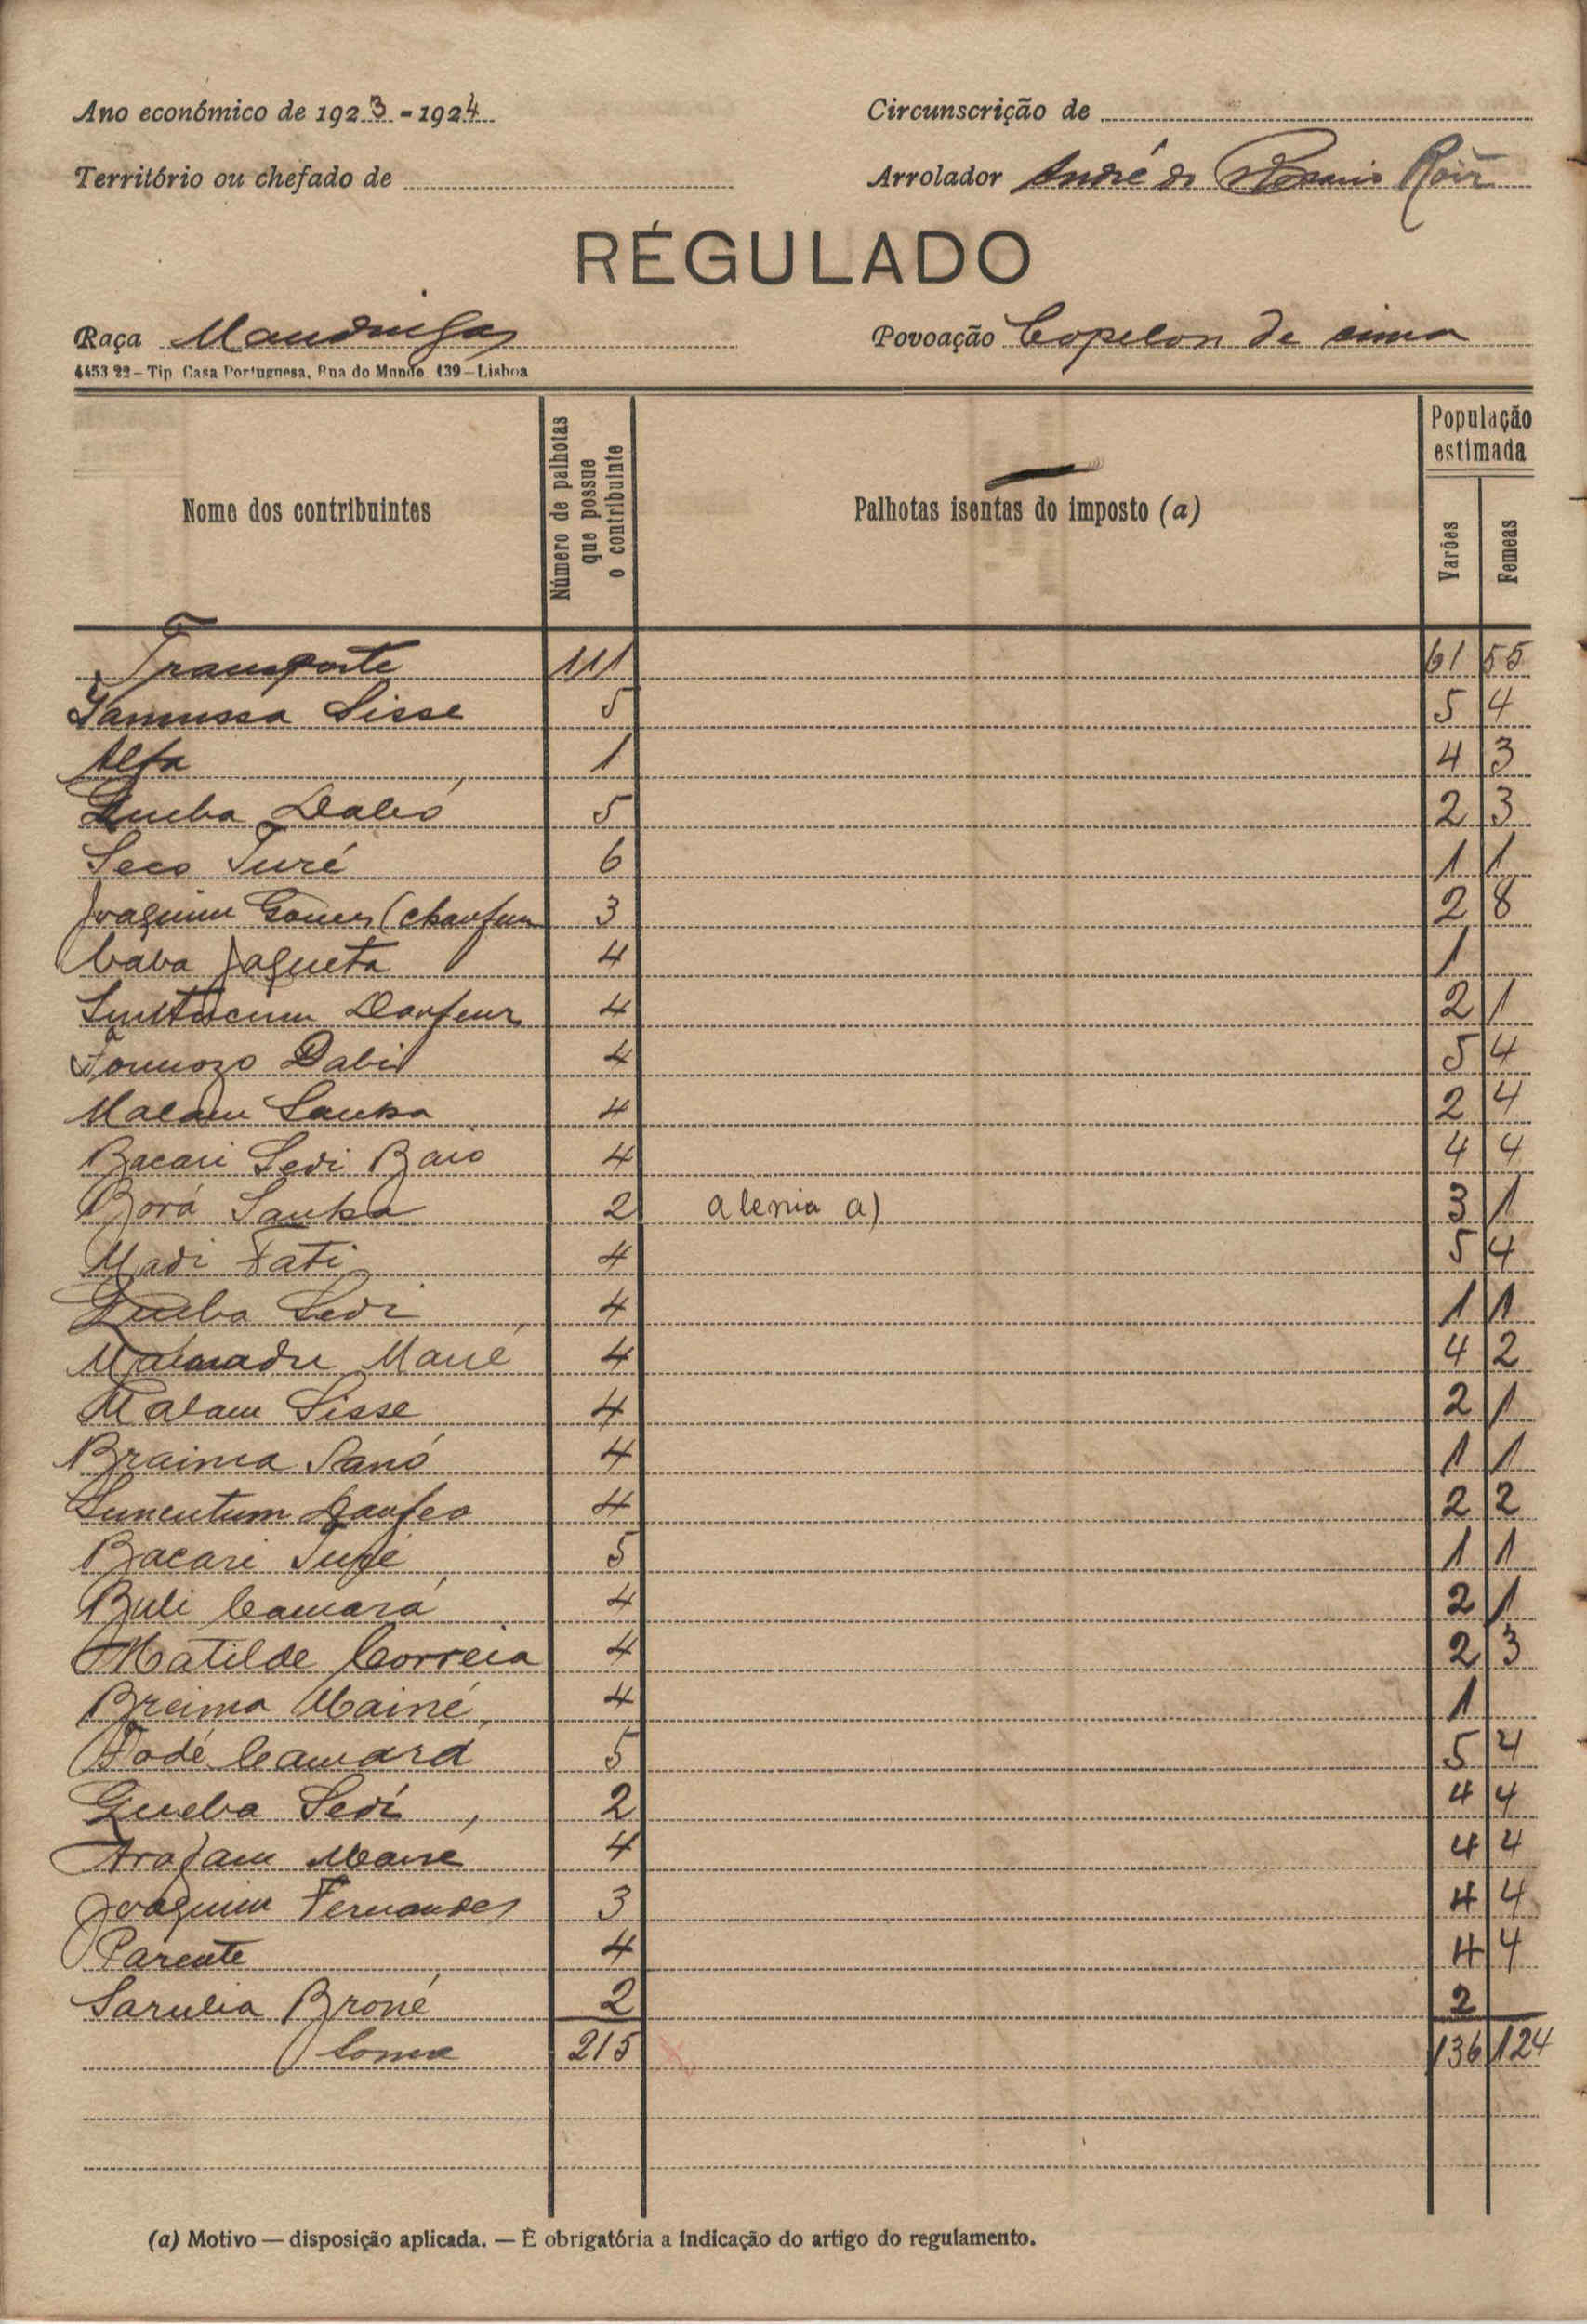 Ano económico de 1923-1924 Circunscrição de
Território ou chefado de Arrolador André do Rosario
RÉGULADO
Raça Mandingas Povoação Copelon de cima
4453 22 – Tip Casa Portuguesa, Rua do Mundo 139 – Lisboa
Nome dos contribuintes
Número de palhotas que possue o contribuinte
Palhotas isentas do imposto (a)
População estimada
Varões
Femeas
Transporte 111 61 55
Jamussa Sisse 5 5 4
Alfa 1 4 3
Queba Dabó 5 2 3
Seco Turé 6 1 1
Joaquim Gomes (chaufeur 3 2 8
Caba Jaqueta 4 1
Daufeur 4 2 1
Formozo Dabó 4 5 4
Malam Sanha 4 2 4
Bacari Sedi Baió 4 4 4
Borá Sanha 2 alenia a) 3 1
Madi Fati 4 5 4
Queba Sedi 4 1 1
Mamadu Mané 4 4 2
Malam Sisse 4 2 1
Braima Sanó 4 1 1
Suncutum 4 2 2
Bacari Turé 5 1 1
Buli Camará 4 2 1
Matilde Correia 4 2 3
Breima Mainé 4 1
Fodé Camará 5 5 4
Queba Sedi 2 4 4
Arafam Mané 4 4 4
Joaquim Fernandes 3 4 4
Parente 4 4 4
Broné 2 2
Soma 215 136 124
(a) Motivo — disposição aplicada. — È obrigatória a indicação do artigo do regulamento.